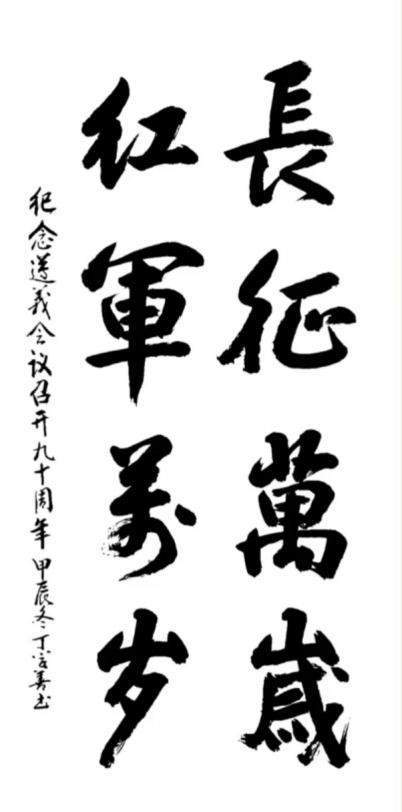 長征萬歲
红軍万岁
纪念遵義会议召开九十周年 甲辰冬 丁 善书